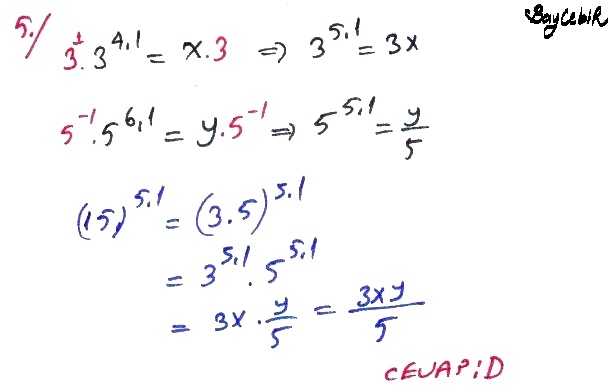 BayCebiR
5./
3¹.3^4,1 = x.3 ⇒ 3^5,1 = 3x
5^-1.5^6,1 = y.5^-1 ⇒ 5^5,1 = y/5
(15)^5,1 = (3.5)^5,1
= 3^5,1 . 5^5,1
= 3x . y/5 = 3xy/5
CEVAP:D